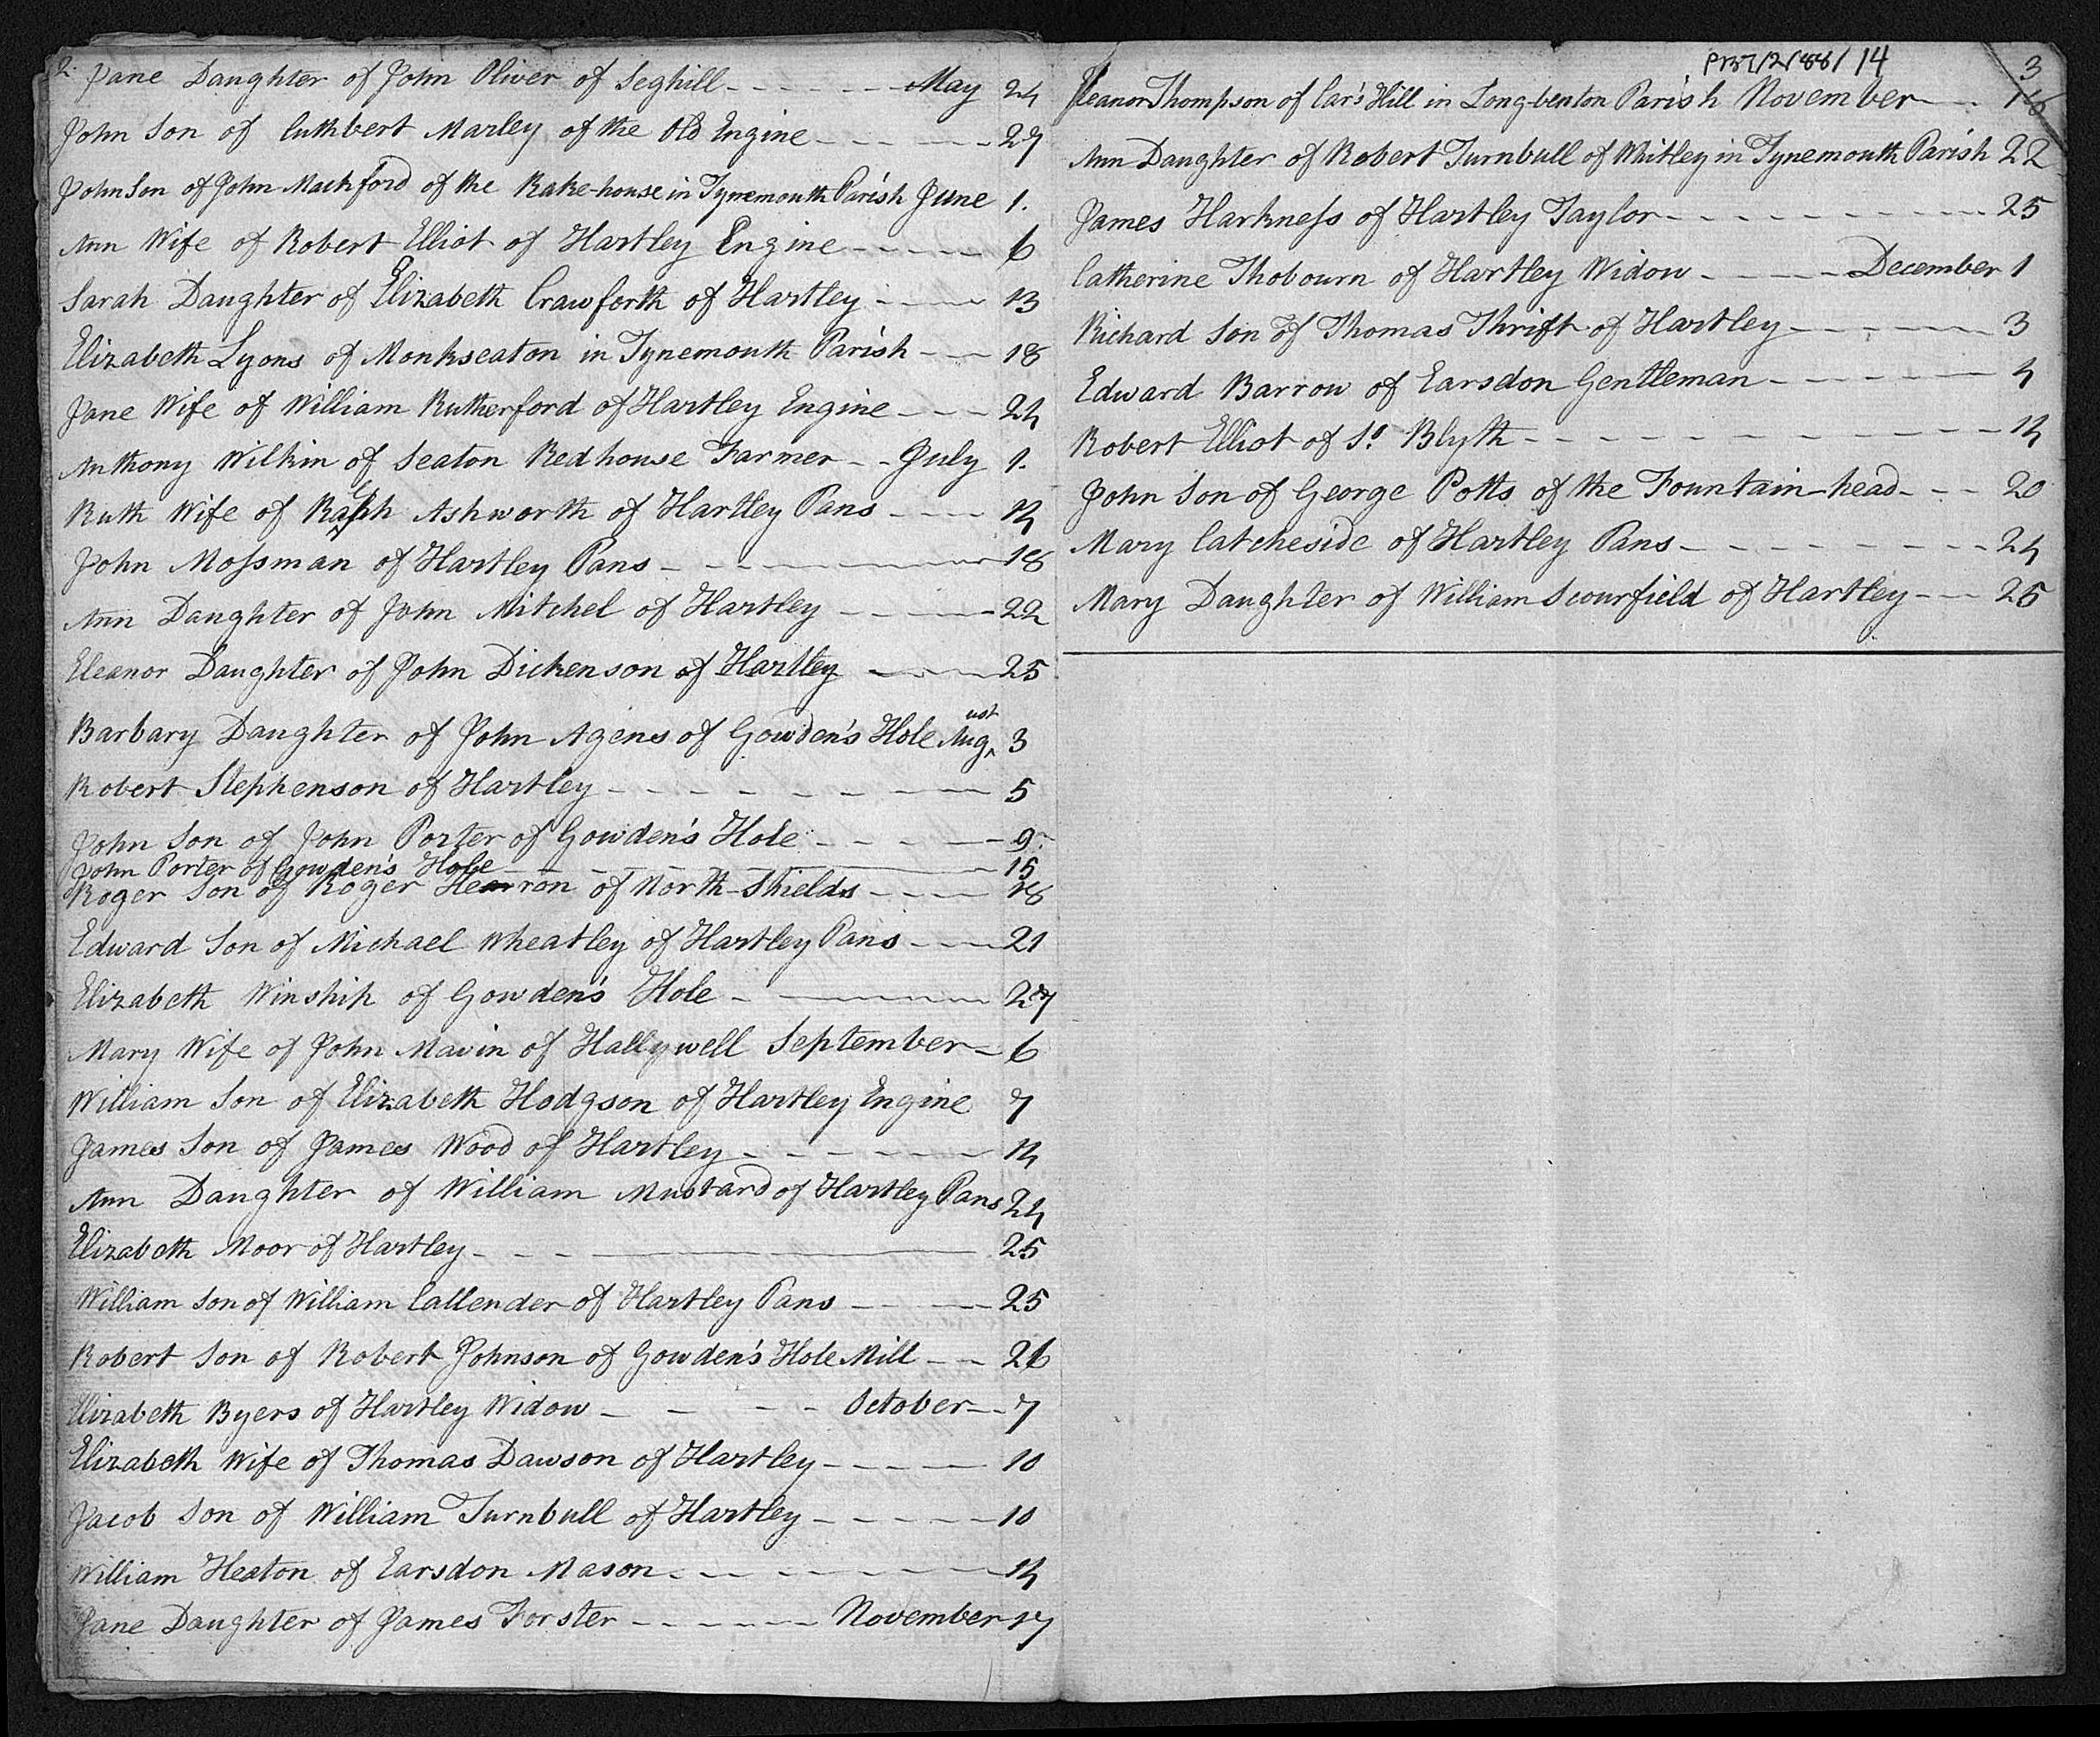 2.
Jane Daughter of John Oliver of Seghill - - - - - - May 24
John Son of Cuthbert Marley of the Old Engine - - - - - - 27
John Son of John Machford of the Rake-house in Tynemouth Parish June 1.
Ann Wife of Robert Elliot of Hartley Engine - - - - - 6
Sarah Daughter of Elizabeth Crawforth of Hartley - - - - 13
Elizabeth Lyons of Monkseaton in Tynemouth Parish - - - 18
Jane Wife of William Rutherford of Hartley Engine - - - 24
Anthony Wilkin of Seaton Redhouse Farmer - - July 1.
Ruth Wife of Ralph Ashworth of Hartley Pans - - - - 14
John Mossman of Hartley Pans - - - - - - - 18
Ann Daughter of John Mitchel of Hartley - - - - 22
Eleanor Daughter of John Dickenson of Hartley - - - - 25
Barbary Daughter of John Agens of Gowden's Hole Aug^ust 3
Robert Stephenson of Hartley - - - - - - - - 5
John Son of John Porter of Gowden's Hole - - - - - 9.
John Porter of Gowden's Hole - - - - - 15
Roger Son of Roger Hearron of North-Shields - - - - 18
Edward Son of Michael Wheatley of Hartley Pans - - - 21
Elizabeth Winship of Gowden's Hole - - - - - - 27
Mary Wife of John Mavin of Hallywell September - 6
William Son of Elizabeth Hodgson of Hartley Engine 7
James Son of James Wood of Hartley - - - - - - 14
Ann Daughter of William Mustard of Hartley Pans 24
Elizabeth Moor of Hartley - - - - 25
William Son of William Callender of Hartley Pans - - - - 25
Robert Son of Robert Johnson of Gowden's Hole Mill - - 26
Elizabeth Byers of Hartley Widow - - - - October - - 7
Elizabeth Wife of Thomas Dawson of Hartley - - - - - 10
Jacob Son of William Turnbull of Hartley - - - - - 10
William Heaton of Earsdon Mason - - - - - - - 14
Jane Daughter of James Forster - - - - - - November 17
14
3
Eleanor Thompson of Car's Hill in Long-benton Parish November - - -
Ann Daughter of Robert Turnbull of Whitley in Tynemouth Parish 22
James Harkness of Hartley Taylor - - - - - - - - - 25
Catherine Thobourn of Hartley Widow - - - - - December 1
Richard Son of Thomas Thrift of Hartley - - - - - - 3
Edward Barrow of Earsdon Gentleman - - - - - - 4
Robert Elliot of So Blyth - - - - - - - - - - - 14
John Son of George Potts of the Fountain-head - - - 20
Mary Catcheside of Hartley Pans - - - - - - - - - 24
Mary Daughter of William Scourfield of Hartley - - - 25